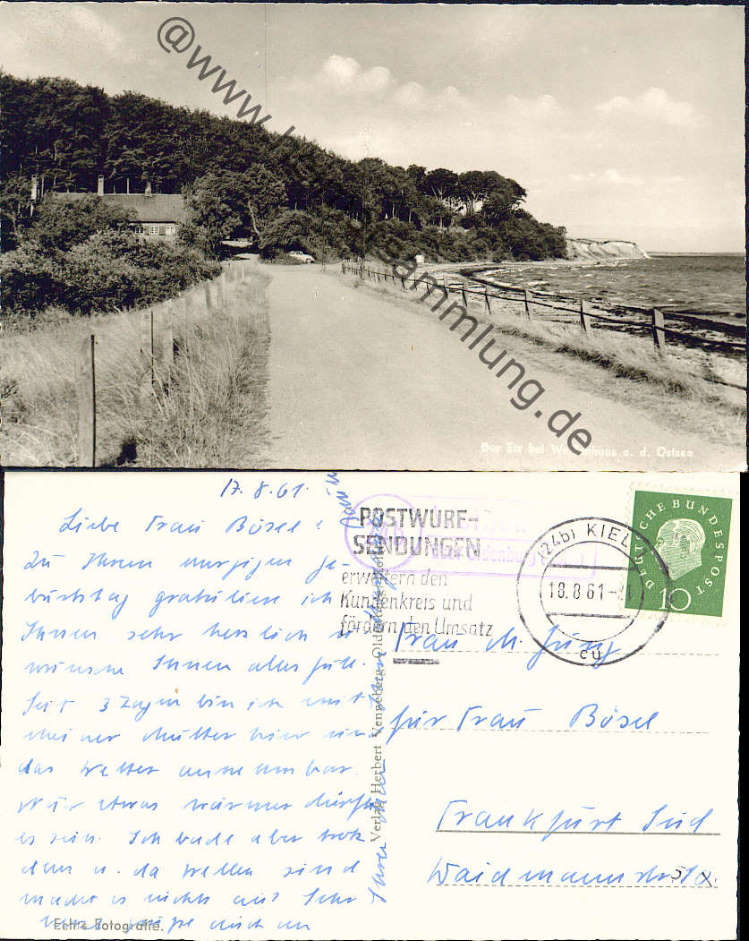 @www.
sammlung.de
bei a. d. Ostsee
17.8.61.
Liebe Frau Bösel!
Zu Ihrem morgigen Ge-
burtstag gratuliere ich
Ihnen sehr herzlich u.
wünsche Ihnen alles Gute.
Seit 3 Tagen bin ich mit
meiner Mutter hier und
das Wetter annehmbar.
Nur etwas wärmer dürfte
es sein. Ich bade aber trotz
dem u. da Wellen sind
macht es nichts aus! Sehr
Echte Fotografie.
Verlag Herbert
POSTWURF-
SENDUNGEN
erweitern den
Kundenkreis und
fördern den Umsatz
(24b) KIEL
18.8.61
cu
DEUTSCHE BUNDESPOST
10
Frau M. Jung
für Frau Bösel
Frankfurt Süd
Waidmannstr.